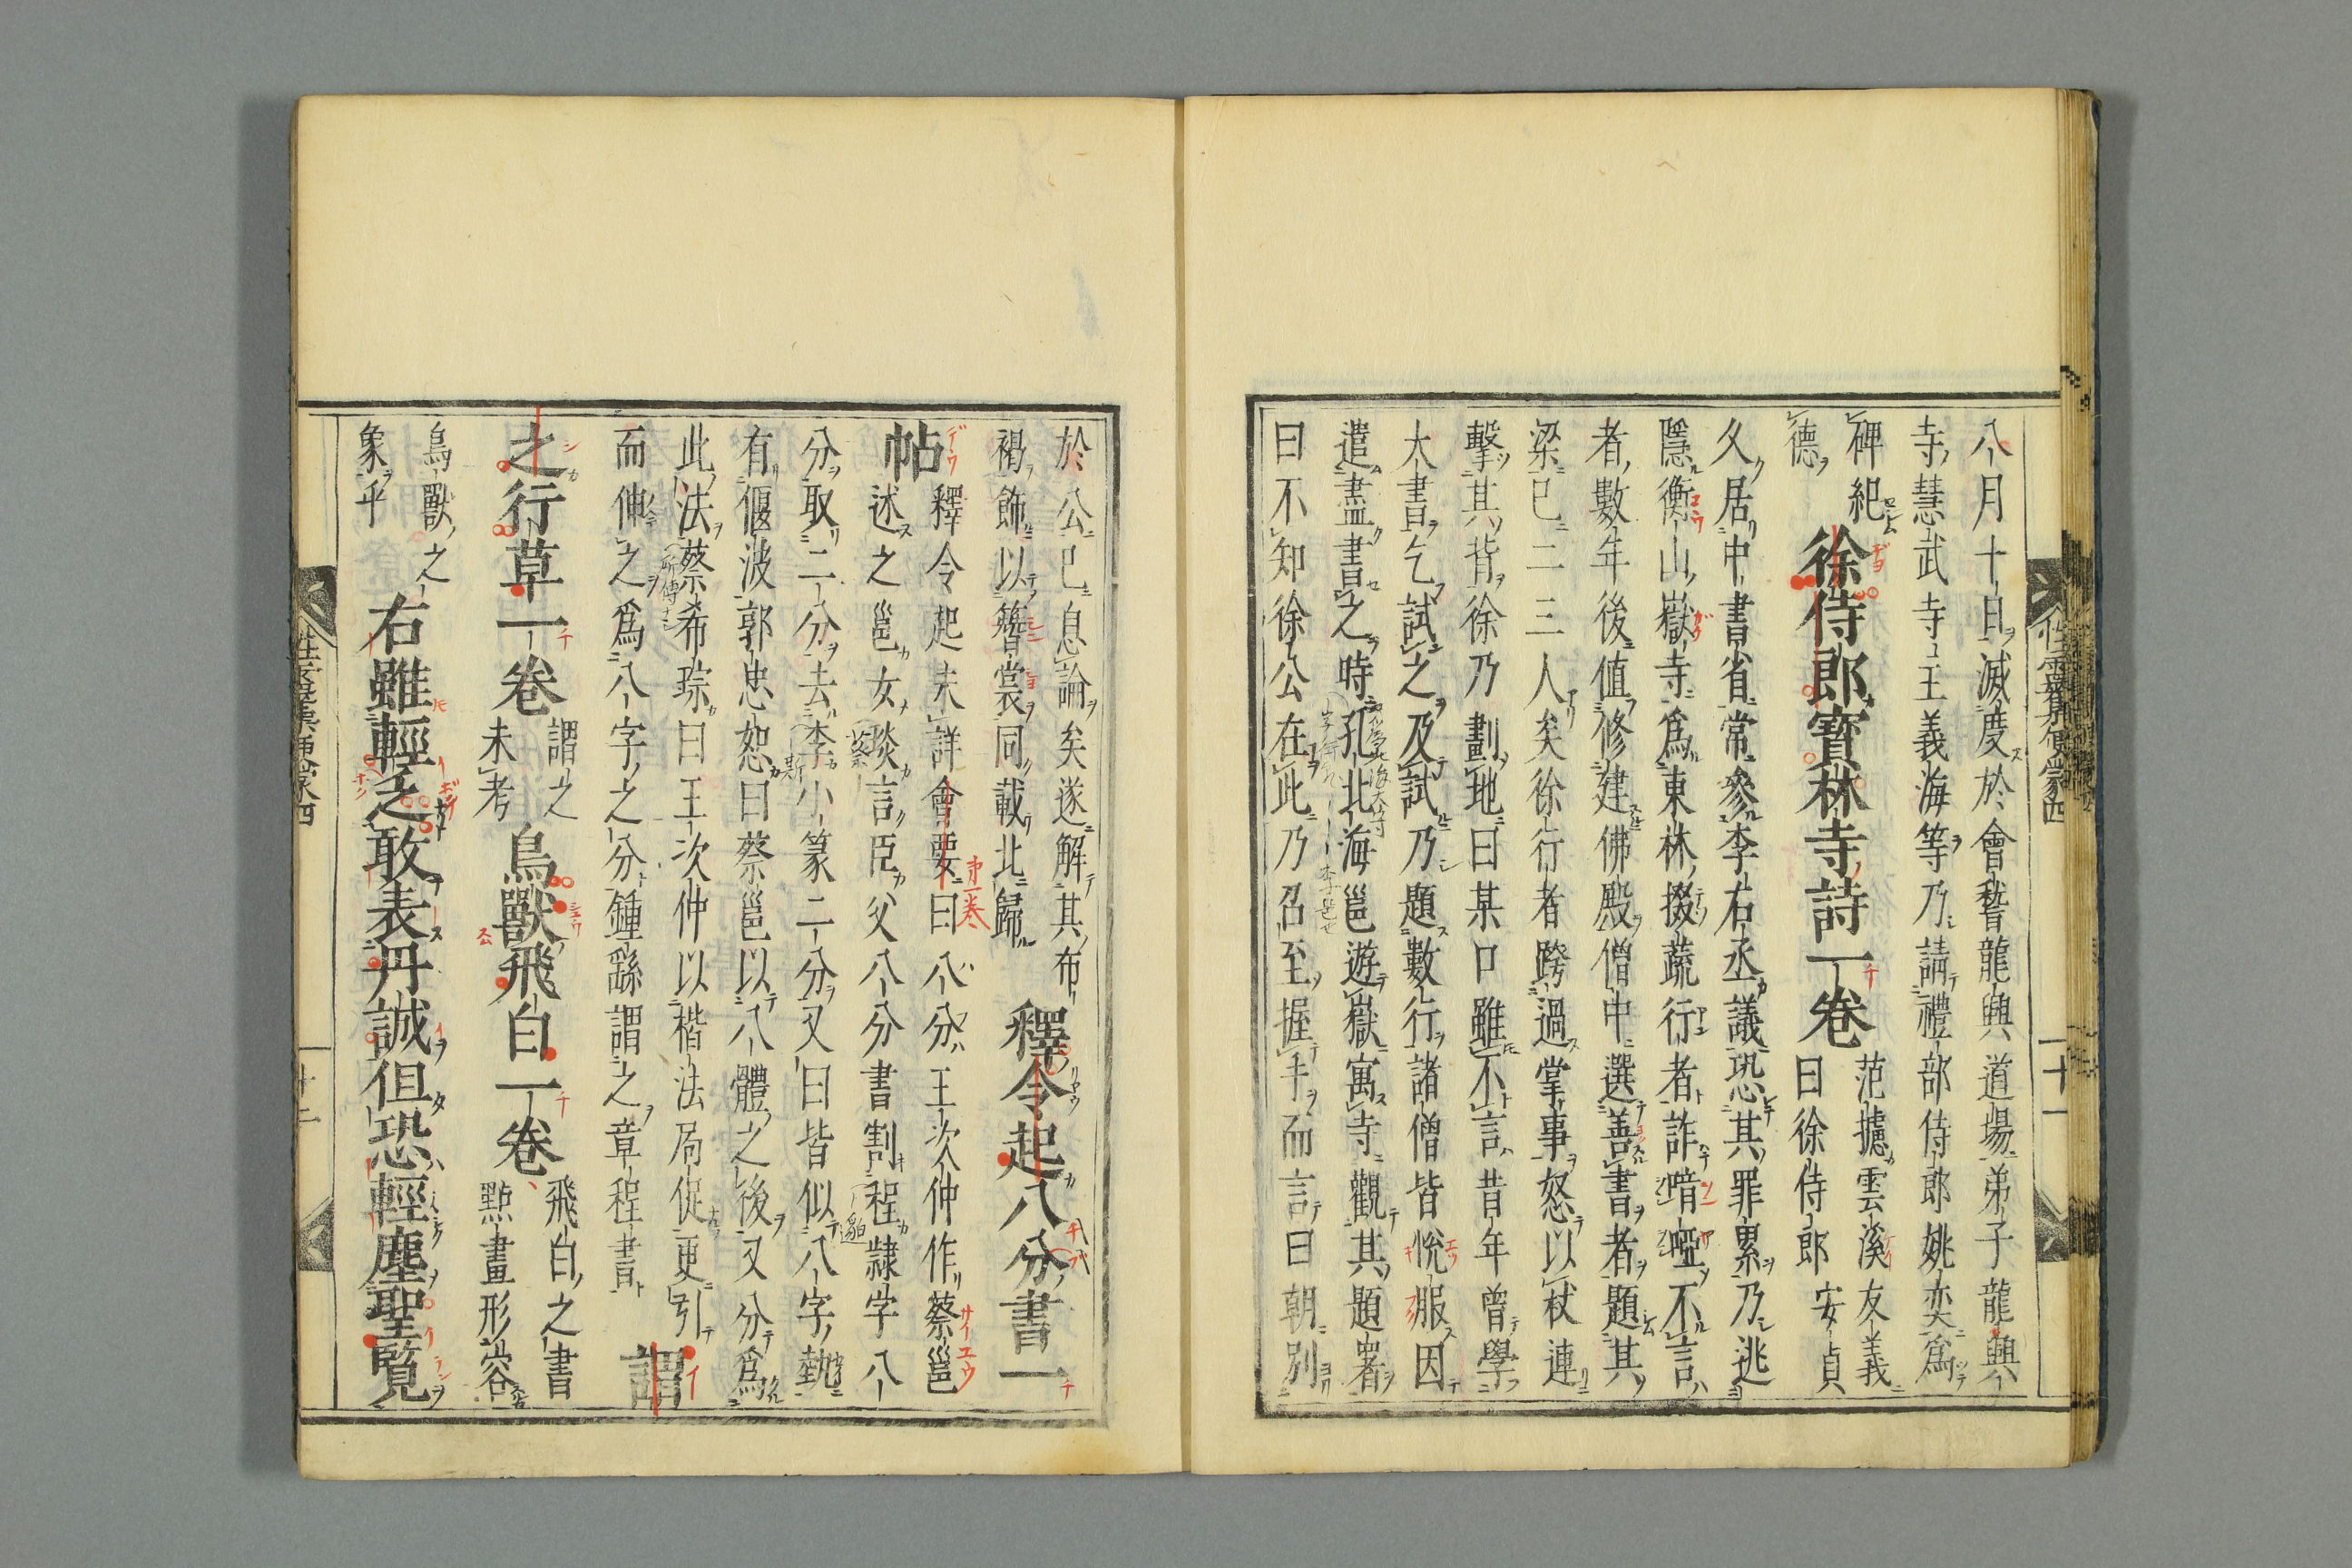 性靈集便蒙四
十一
八月十日滅度於會誓龍興道場弟子龍興
寺慧武寺主義海等乃請禮部侍郎姚奕爲
碑紀
德
徐侍郎寶林寺詩一卷
范攄雲溪友義
曰徐侍郎安貞
久居中書省常參李右丞議恐其罪累乃逃
隱衡山嶽寺爲東林掇蔬行者詐喑啞不言
者數年後值修建佛殿僧中選善書者題其
梁已二三人矣徐行者跨過掌事怒以杖連
擊其背徐乃劃地曰某口雖不言昔年曾學
大書乞試之及試乃題數行諸僧皆悅服因
遣盡書之時孔北海邕遊嶽寓寺觀其題署
曰不知徐公在此乃召至握手而言曰朝別
於公已息論矣遂解其布
褐飾以簪裳同載北歸
釋令起八分書一
帖
釋令起未詳會要曰八分王次仲作蔡邕
述之邕女琰言臣父八分書割程隸字八
第一卷
分取二分去李小篆二分又曰皆似八字執
有偃波郭忠恕曰蔡邕以八體之後又分爲
此法蔡希琮曰王次仲以楷法局促更引
而伸之爲八字之分鍾繇謂之章程書
謂
之行草一卷
謂之
未考
鳥獸飛白一卷
飛白之書
點畫形容
鳥獸之
象乎
右雖輕乏敢表丹誠但恐輕塵聖覽